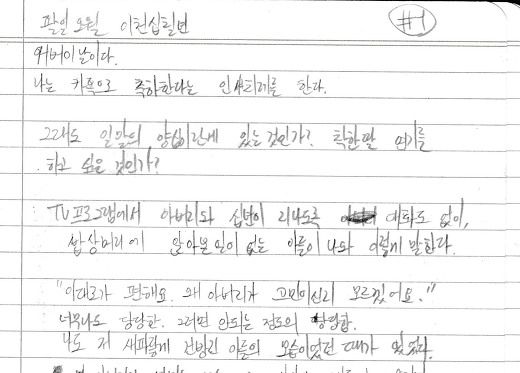 팔일 오월 이천십칠년
#1
어버이날이다.
나는 카톡으로 축하한다는 인사치레를 한다.
그래도 일말의 양심이란게 있는것인가? 착한딸 연기를
하고 싶은 것인가?
TV프로그램에서 아버리와 십년이 리나도록 대화도 없이,
밥상머리에 앉아본일이 없는 아들이 나와 이렇게 말한다.
"이대로가 편해요. 왜 아버리가 고민이신리 모르겠어요."
너무나도 당당한. 그러면 안되는 정도의 당당함.
나도 저 새파랗게 건방진 아들의 모습이었던 때가 있었다.